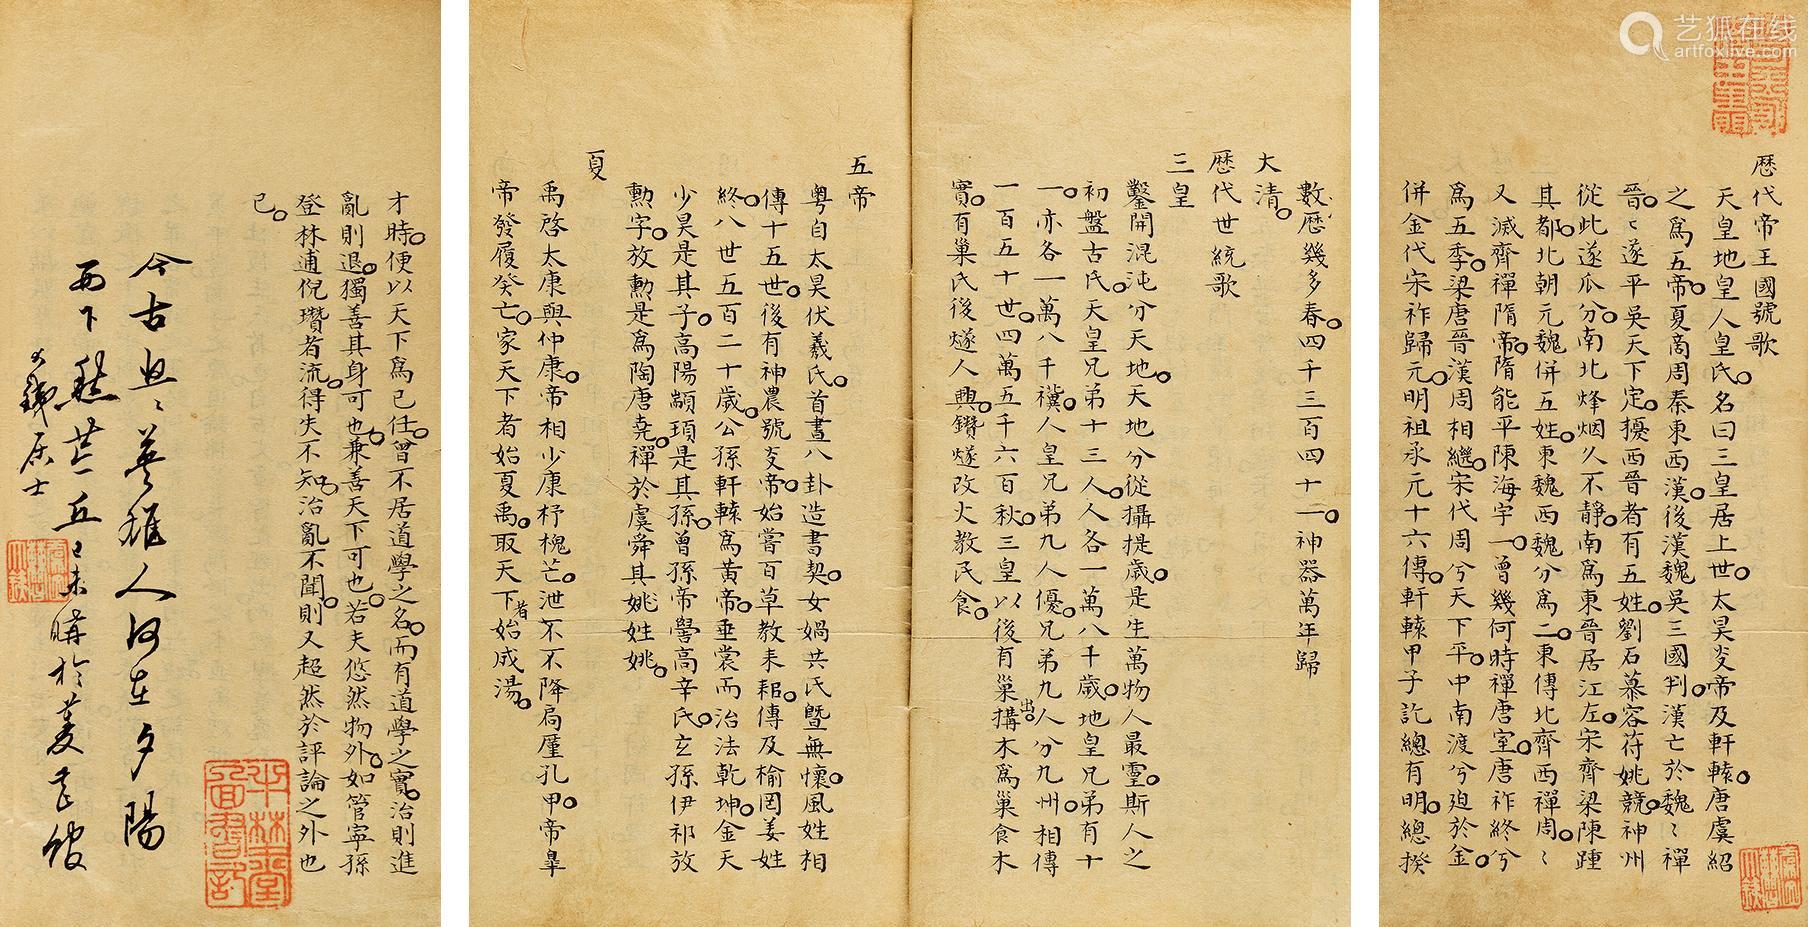 歷代帝王國號歌
天皇地皇人皇氏名曰三皇居上世太昊炎帝及軒轅唐虞紹
之爲五帝夏商周秦東西漢後漢魏吳三國判漢亡於魏〻禪
晉〻遂平吳天下定擾西晉者有五姓劉石慕容苻姚競神州
從此遂瓜分南北烽烟久不靜南爲東晉居江左宋齊梁陳踵
其都北朝元魏併五姓東魏西魏分爲二東傳北齊西禪周〻
又滅齊禪隋帝隋能平陳海宇一曾幾何時禪唐室唐祚終兮
爲五季梁唐晉漢周相繼宋代周兮天下平中南渡兮迫於金
併金代宋祚歸元明祖承元十六傳軒轅甲子訖總有明總揆
數歷幾多春四千三百四十二神器萬年歸
大清
歷代世統歌
三皇
鑿開混沌分天地天地分從攝提歲是生萬物人最靈斯人之
初盤古氏天皇兄弟十三人人各一萬八千歲地皇兄弟有十
一亦各一萬八千禩人皇兄弟九人優兄弟九人分九州相傳
一百五十世四萬五千六百秋三皇以後有巢出構木爲巢食木
實有巢氏後燧人興鑽燧改火教民食
五帝
粵自太昊伏羲氏首畫八卦造書契女媧共氏暨無懷風姓相
傳十五世後有神農號炎帝始嘗百草教耒耜傳及榆罔姜姓
終八世五百二十歲公孫軒轅爲黃帝垂裳而治法乾坤金天
少昊是其子高陽顓頊是其孫曾孫帝嚳高辛氏玄孫伊祁放
勳字放勳是爲陶唐堯禪於虞舜其姚姓姚
夏
禹啓太康與仲康帝相少康杼槐芒泄不不降扃厪孔甲帝皋
帝發履癸亡家天下者始夏禹取天下者始成湯
才時便以天下爲己任曾不居道學之名而有道學之實治則進
亂則退獨善其身可也兼善天下可也若夫悠然物外如管寧孫
登林逋倪瓚者流得失不知治亂不聞則又超然於評論之外也
已
今古興〻英雄人何在夕陽
西下
居士
己未購於
平林堂
艺狐在线
artfoxlive.com